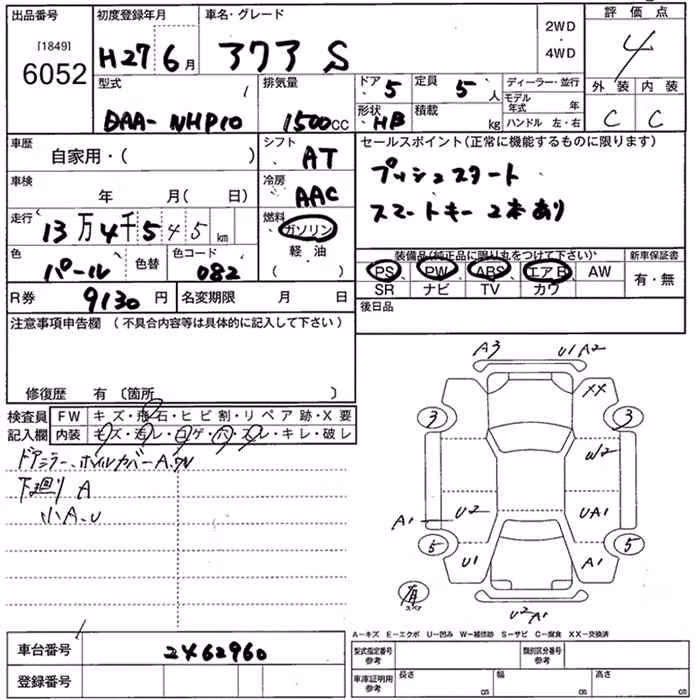 出品番号
[1849]
6052
初度登録年月
H27 6月
車名・グレード
アクア S
2WD
・
4WD
評価点
4
型式
DAA-NHP10
排気量
1500cc
ドア 5
定員 5人
形状 HB
積載 kg
ディーラー・並行
モデル年式 年
ハンドル 左・右
外装 内装
C C
車歴
自家用・( )
シフト AT
セールスポイント(正常に機能するものに限ります)
プッシュスタート
スマートキー2本あり
車検 年 月( 日)
冷房 AAC
走行 13万4千545km
燃料 ガソリン
軽油
( )
色 パール 色替
色コード 082
装備品(純正品に限り丸をつけて下さい)
PS PW ABS エアB AW
SR ナビ TV カワ
新車保証書
有・無
R券 9130円
名変期限 月 日
後日品
注意事項申告欄(不具合内容等は具体的に記入して下さい)
修復歴 有〔箇所 〕
検査員記入欄
FW キズ・飛石・ヒビ割・リペア跡・X要
内装 キズ・汚レ・コゲ・穴・スレ・キレ・破レ
ドアミラー、ホイルカバーA.ワレ
下廻り A
小A.U
A3 U1A2
XX
3 3
W2
U2 UA1
A1
5 5
U1 A1
有
スペア
U2A1
A-キズ E-エクボ U-凹み W-補修跡 S-サビ C-腐食 XX-交換済
車台番号 2462960
登録番号
型式指定番号 参考
類別区分番号 参考
車庫証明用 参考
長さ cm
幅 cm
高さ cm